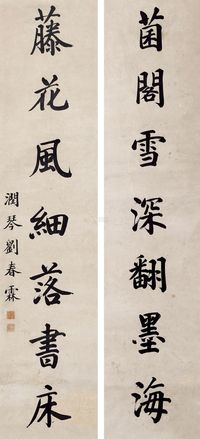 菌閣雪深翻墨海
藤花風細落書床
潤琴劉春霖